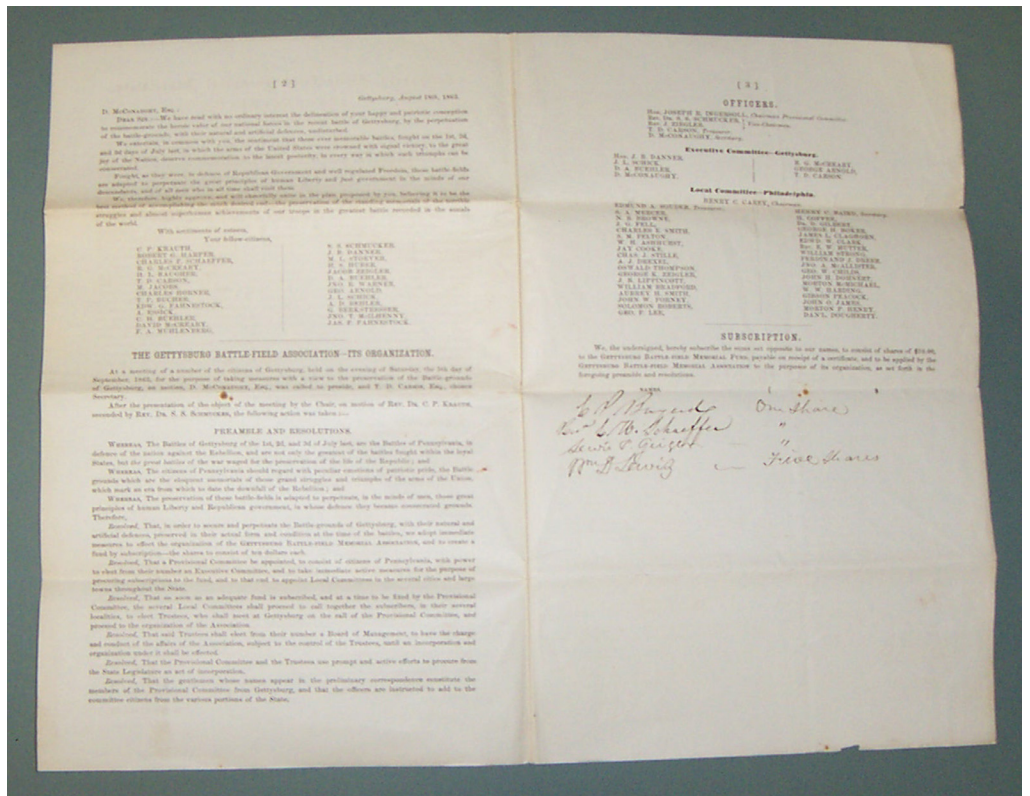 [ 2 ]
Gettysburg, August 19th, 1863.
D. McConaughy, Esq.:
Dear Sir:—We have read with no ordinary interest the delineation of your happy and patriotic conception
to commemorate the heroic valor of our national forces in the recent battle of Gettysburg, by the perpetuation
of the battle-grounds, with their natural and artificial defences, undisturbed.
We entertain, in common with you, the sentiment that these ever memorable battles, fought on the 1st, 2d,
and 3d days of July last, in which the arms of the United States were crowned with signal victory, to the great
joy of the Nation, deserve commemoration to the latest posterity, in every way in which such triumphs can be
consecrated.
Fought, as they were, in defence of Republican Government and well regulated Freedom, these battle-fields
are adapted to perpetuate the great principles of human Liberty and just government in the minds of our
descendants, and of all men who in all time shall visit them.
We, therefore, highly approve, and will cheerfully unite in the plan proposed by you, believing it to be the
best method of accomplishing the much desired end—the preservation of the standing memorials of the
struggles and almost superhuman achievements of our troops in the greatest battle recorded in the annals
of the world.
With sentiments of esteem,
Your fellow-citizens,
C. P. KRAUTH,
ROBERT G. HARPER,
CHARLES F. SCHAEFFER,
R. G. McCREARY,
H. L. BAUGHER,
T. D. CARSON,
M. JACOBS,
CHARLES HORNER,
T. P. BUCHER,
EDW. G. FAHNESTOCK,
A. ESSICK,
C. H. BUEHLER,
DAVID McCREARY,
F. A. MUHLENBERG,
S. S. SCHMUCKER,
J. B. DANNER,
M. L. STOEVER,
H. S. HUBER,
JACOB BENNER,
D. A. BUEHLER,
JNO. R. WARNER,
GEO. ARNOLD,
J. L. SCHICK,
G. BERKSTRESSER,
JNO. T. McILHENNY,
JAS. F. FAHNESTOCK.
THE GETTYSBURG BATTLE-FIELD ASSOCIATION—ITS ORGANIZATION.
At a meeting of a number of the citizens of Gettysburg, held on the evening of Saturday, the 5th day of
September, 1863, for the purpose of taking measures with a view to the preservation of the Battle-grounds
of Gettysburg, on motion, D. McConaughy, Esq., was called to preside, and T. D. Carson, Esq., chosen
Secretary.
After the presentation of the object of the meeting by the Chair, on motion of Rev. Dr. C. P. Krauth,
seconded by Rev. Dr. S. S. Schmucker, the following action was taken:—
PREAMBLE AND RESOLUTIONS.
Whereas, The Battles of Gettysburg of the 1st, 2d, and 3d of July last, are the Battles of Pennsylvania, in
defence of the nation against the Rebellion, and are not only the greatest of the battles fought within the loyal
States, but the great battles of the war waged for the preservation of the life of the Republic; and
Whereas, The citizens of Pennsylvania should regard with peculiar emotions of patriotic pride, the Battle
grounds which are the eloquent memorials of those grand struggles and triumphs of the arms of the Union,
which mark an era from which to date the downfall of the Rebellion; and
Whereas, The preservation of these battle-fields is adapted to perpetuate, in the minds of men, those great
principles of human Liberty and Republican government, in whose defence they became consecrated grounds.
Therefore,
Resolved, That, in order to secure and perpetuate the Battle-grounds of Gettysburg, with their natural and
artificial defences, preserved in their actual form and condition at the time of the battles, we adopt immediate
measures to effect the organization of the Gettysburg Battle-field Memorial Association, and to create a
fund by subscription—the shares to consist of ten dollars each.
Resolved, That a Provisional Committee be appointed, to consist of citizens of Pennsylvania, with power
to elect from their number an Executive Committee, and to take immediate active measures for the purpose of
procuring subscriptions to the fund, and to that end to appoint Local Committees in the several cities and large
towns throughout the State.
Resolved, That as soon as an adequate fund is subscribed, and at a time to be fixed by the Provisional
Committee, the several Local Committees shall proceed to call together the subscribers, in their several
localities, to elect Trustees, who shall meet at Gettysburg on the call of the Provisional Committee, and
proceed to the organization of the Association.
Resolved, That said Trustees shall elect from their number a Board of Management, to have the charge
and conduct of the affairs of the Association, subject to the control of the Trustees, until an incorporation and
organization under it shall be effected.
Resolved, That the Provisional Committee and the Trustees use prompt and active efforts to procure from
the State Legislature an act of incorporation.
Resolved, That the gentlemen whose names appear in the preliminary correspondence constitute the
members of the Provisional Committee from Gettysburg, and that the officers are instructed to add to the
committee citizens from the various portions of the State.
[ 3 ]
OFFICERS.
Hon. JOSEPH R. INGERSOLL, Chairman Provisional Committee.
Rev. Dr. S. S. SCHMUCKER,
Rev. J. ZIEGLER, Vice-Chairmen.
T. D. CARSON, Treasurer.
D. McCONAUGHY, Secretary.
Executive Committee—Gettysburg.
Hon. J. B. DANNER,
J. L. SCHICK,
D. A. BUEHLER,
D. McCONAUGHY,
R. G. McCREARY,
GEORGE ARNOLD,
T. D. CARSON.
Local Committee—Philadelphia.
HENRY C. CAREY, Chairman.
EDMUND A. SOUDER, Treasurer.
S. A. MERCER,
N. B. BROWNE,
J. G. FELL,
CHARLES E. SMITH,
S. M. FELTON,
W. H. ASHHURST,
JAY COOKE,
CHAS. J. STILLE,
A. J. DREXEL,
OSWALD THOMPSON,
GEORGE K. ZEIGLER,
J. B. LIPPINCOTT,
WILLIAM BRADFORD,
AUBREY H. SMITH,
JOHN W. FORNEY,
SOLOMON ROBERTS,
GEO. F. LEE,
HENRY C. BAIRD, Secretary.
H. COPPEE,
Dr. W. GILBERT,
GEORGE H. BOKER,
JAMES L. CLAGHORN,
EDWD. W. CLARK,
Rev. E. W. HUTTER,
WILLIAM STRONG,
FERDINAND J. DREER,
JNO. A. McALLISTER,
GEO. W. CHILDS,
JOHN H. DOHNERT,
MORTON McMICHAEL,
W. W. HARDING,
GIBSON PEACOCK,
JOHN O. JAMES,
MORTON P. HENRY,
DANL. DOUGHERTY.
SUBSCRIPTION.
We, the undersigned, hereby subscribe the sums set opposite to our names, to consist of shares of $10.00,
to the Gettysburg Battle-field Memorial Fund, payable on receipt of a certificate, and to be applied by the
Gettysburg Battle-field Memorial Association to the purposes of its organization, as set forth in the
foregoing preamble and resolutions.
NAMES.
One Share
C. W. Schaeffer "
Lewis P. Geiger "
Five Shares